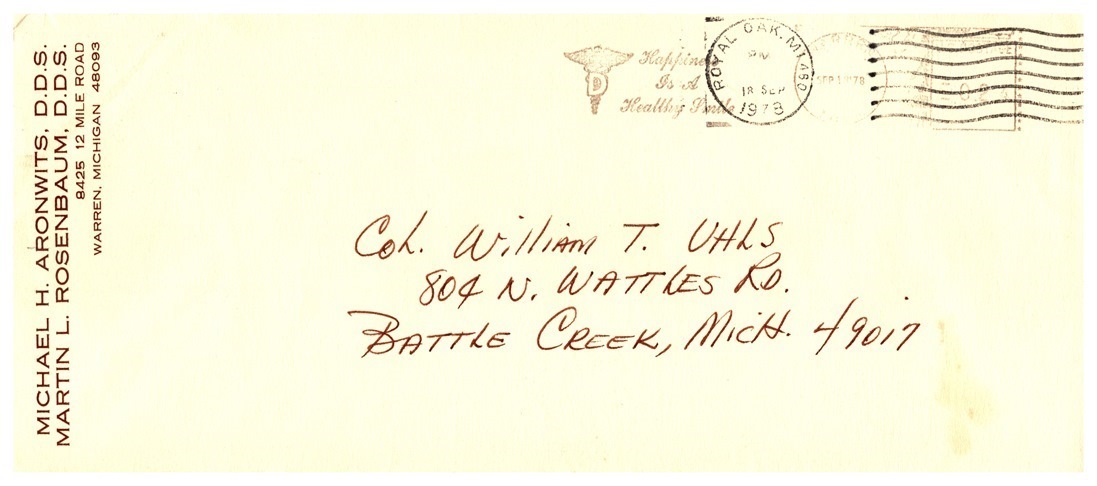 MICHAEL H. ARONWITS, D.D.S.
MARTIN L. ROSENBAUM, D.D.S.
8425 12 MILE ROAD
WARREN, MICHIGAN 48093
D
Happine
Is A
Healthy Smile
ROYAL OAK, MI 480
PM
18 SEP
1978
SEP 1 '78
Col. William T. UHLS
804 N. WATTLES RD.
BATTLE CREEK, MICH. 49017